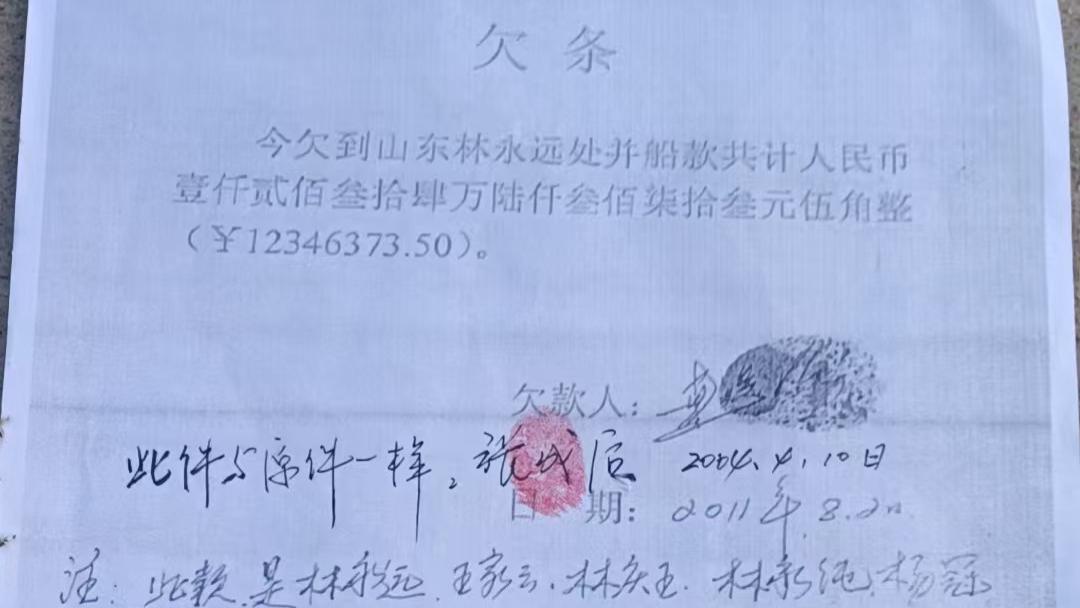 欠条
今欠到山东林永远处并船款共计人民币
壹仟贰佰叁拾肆万陆仟叁佰柒拾叁元伍角整
（￥12346373.50）。
欠款人：
此件与原件一样，张成后 2004.4.10日
日期：2011年8.20
注：此款是林永远.王家云.林庆玉.林新纯.杨冠